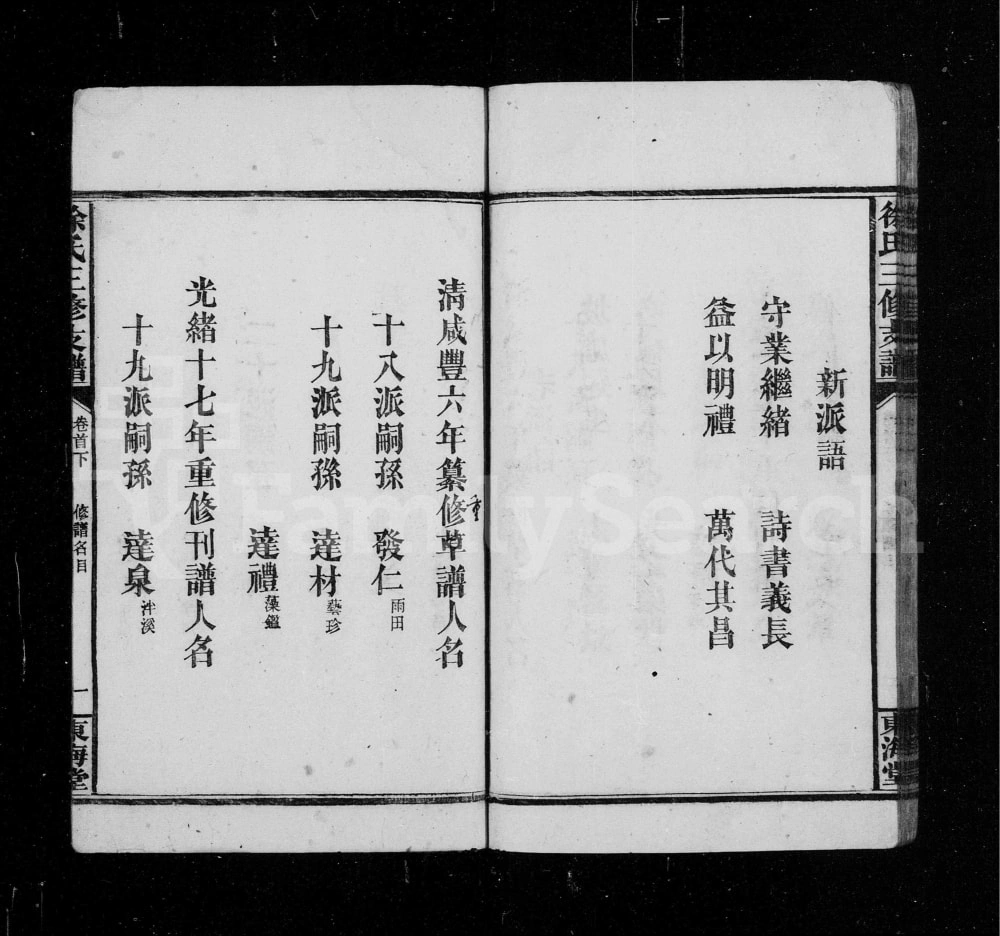 徐氏三修支譜
東海堂
新派語
守業繼緒 詩書義長
益以明禮 萬代其昌
清咸豐六年纂修草譜人名
重
十八派嗣孫 發仁 雨田
十九派嗣孫 達材 藝珍
達禮 藻鑑
光緒十七年重修刊譜人名
十九派嗣孫 達泉 泮溪
徐氏三修支譜
卷首下
修譜名目
一
東海堂
FamilySearch